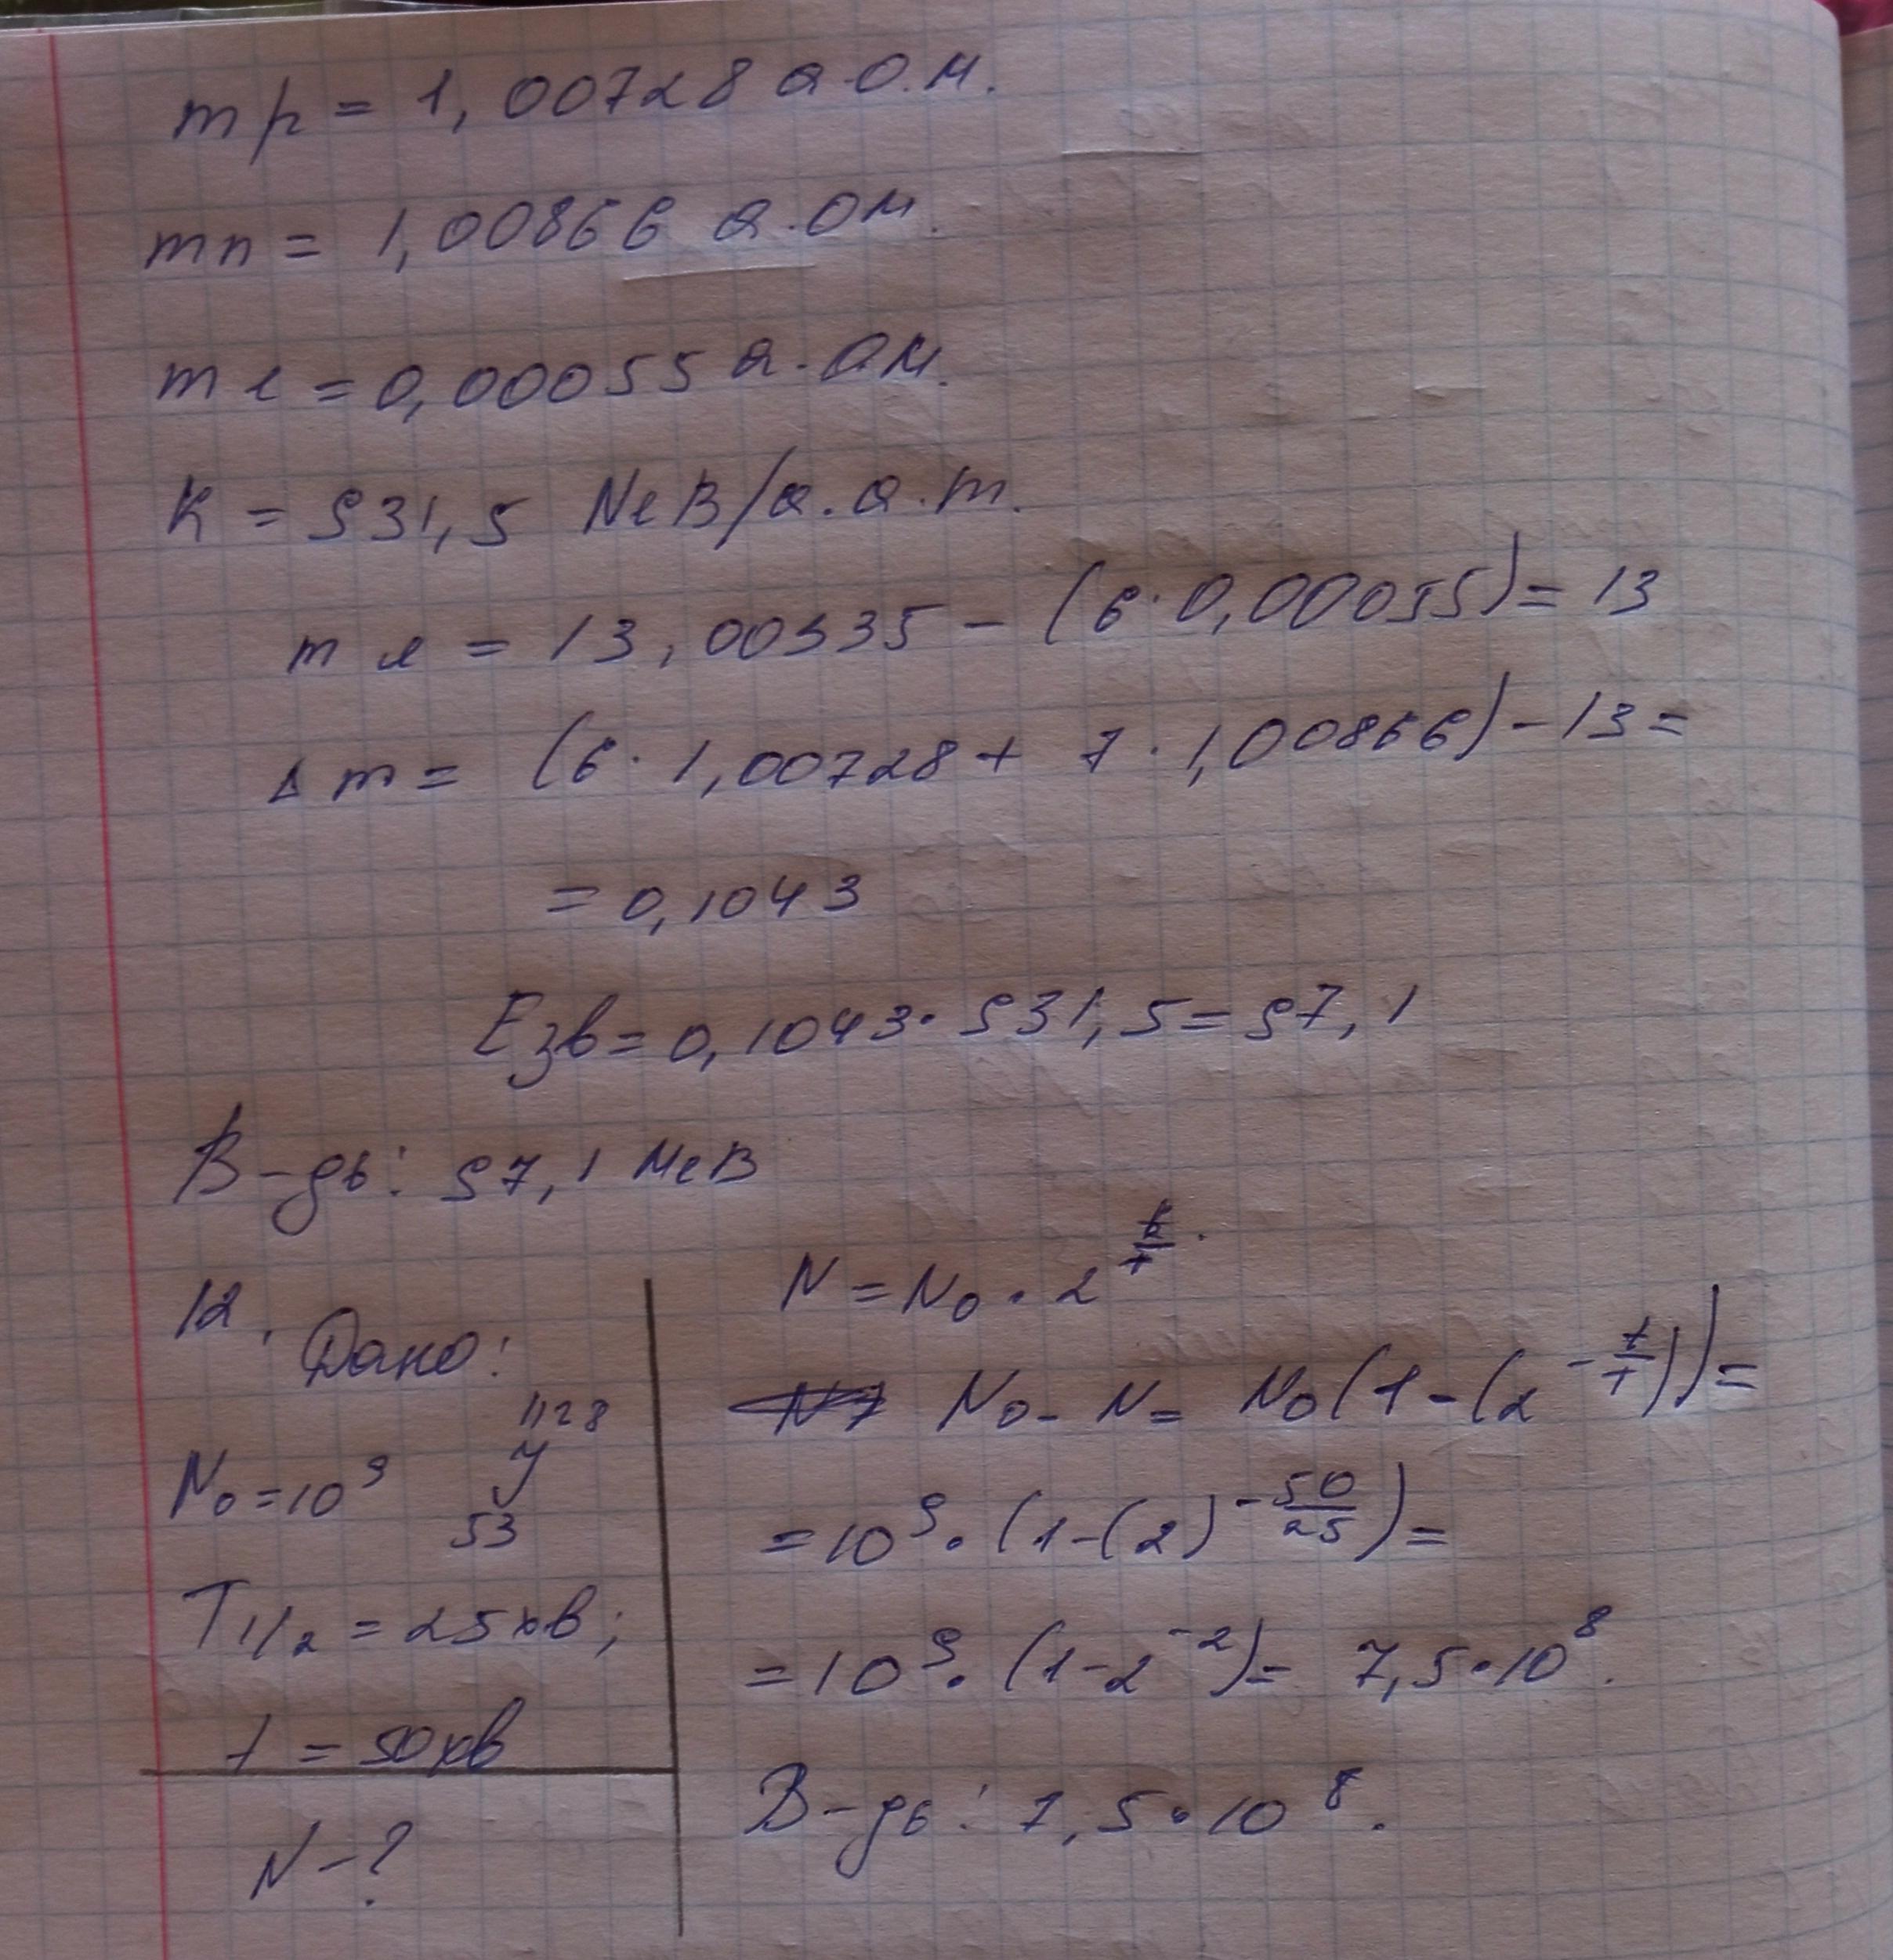 mp = 1,00728 а.о.м.
mn = 1,00866 а.ом.
me = 0,00055 а.ом.
K = 931,5 МеВ/а.о.m.
m я = 13,00335 - (6·0,00055) = 13
Δm = (6·1,00728 + 7·1,00866) - 13 =
= 0,1043
Eзв = 0,1043·931,5 = 97,1
В-дь: 97,1 МеВ
12. Дано:
N₀ = 10⁹ ¹²⁸₅₃У
T1/2 = 25хв;
t = 50хв
N-?
N = N₀·2^(t/T).
N₀ - N = N₀(1-(2^(-t/T))) =
= 10⁹·(1-(2)^(-50/25)) =
= 10⁹·(1-2⁻²) = 7,5·10⁸.
В-дь: 7,5·10⁸.